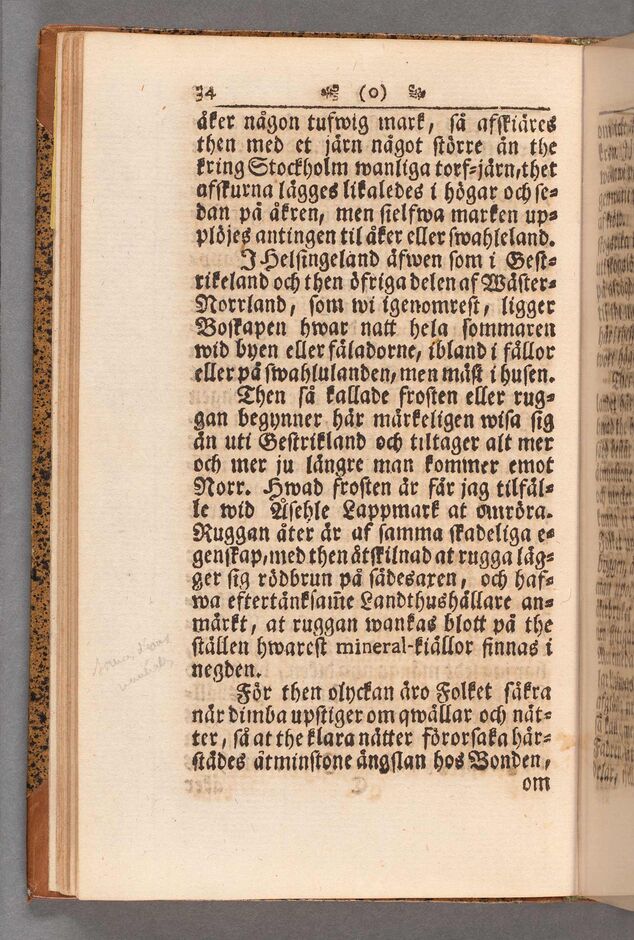 34 (o)
åker någon tufwig mark, så afskiäres
then med et järn något större än the
kring Stockholm wanliga torf-järn, thet
afskurna lägges likaledes i högar och se-
dan på åkren, men sielfwa marken up-
plöjes antingen til åker eller swahleland.
J Helsingeland äfwen som i Gest-
rikeland och then öfriga delen af Wäster-
Norrland, som wi igenomrest, ligger
Boskapen hwar natt hela sommaren
wid byen eller fäladorne, ibland i fällor
eller på swahlulanden, men mäst i husen.
Then så kallade frosten eller rug-
gan begynner här märkeligen wisa sig
än uti Gestrikland och tiltager alt mer
och mer ju längre man kommer emot
Norr. Hwad frosten är får jag tilfäl-
le wid Åsehle Lappmark at omröra.
Ruggan åter är af samma skadeliga e-
genskap, med then åtskilnad at rugga läg-
ger sig rödbrun på sädesaxen, och haf-
wa eftertänksam̃e Landthushällare an-
märkt, at ruggan wankas blott på the
ställen hwarest mineral-kiällor finnas i
negden.
För then olyckan äro Folket säkra
när dimba upstiger om qwällar och nät-
ter, så at the klara nätter förorsaka här-
städes åtminstone ängslan hos Bonden,
om